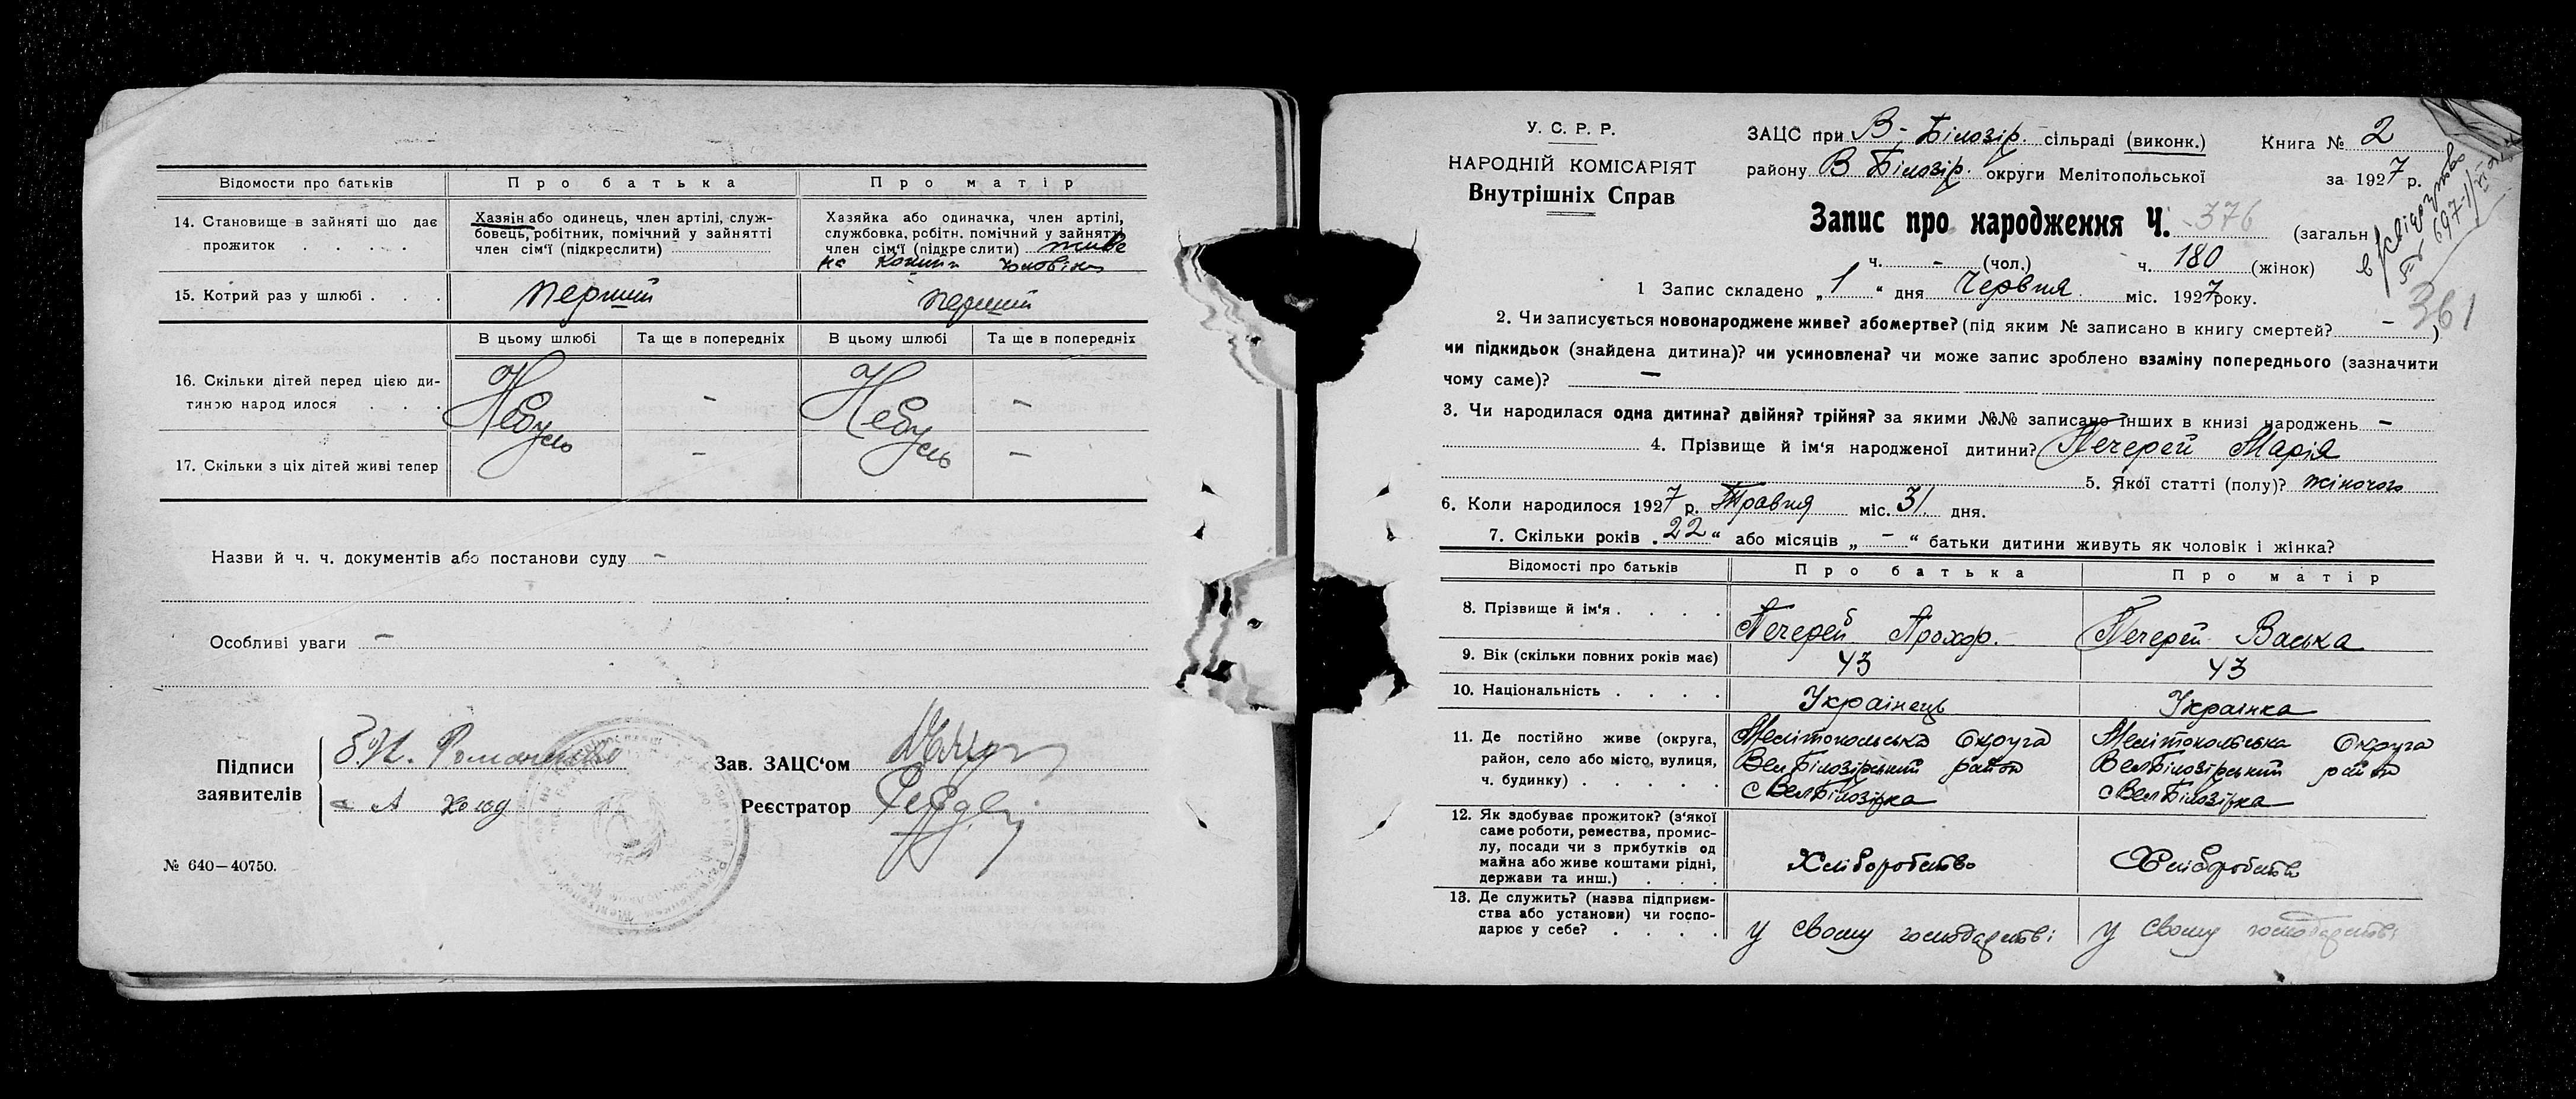 Відомости про батьків
Про батька
Про матір
14. Становище в зайняті що дає
прожиток . . . .
Хазяін або одинець, член артілі, служ-
бовець, робітник, помічний у зайнятті
член сім'ї (підкреслити)
Хазяйка або одиначка, член артілі,
службовка, робітн. помічний у зайнятті
член сім'ї (підкре слити) живе
на кошти чоловіка
15. Котрий раз у шлюбі . . .
перший
перший
В цьому шлюбі
Та ще в попередніх
В цьому шлюбі
Та ще в попередніх
16. Скільки дітей перед цією ди-
тиною народ илося . . .
Небуло
-
Небуло
-
17. Скільки з ціх дітей живі тепер
-
-
Назви й ч. ч. документів або постанови суду -
Особливі уваги -
Підписи
заявителів
Романенко
А Холод
Зав. ЗАЦС'ом
Реєстратор
№ 640—40750.
У. С. Р. Р.
НАРОДНІЙ КОМІСАРІЯТ
Внутрішніх Справ
ЗАЦС при В-Білозір. сільраді (виконк.)
Книга № 2
району В Білозір. округи Мелітопольської
за 1927 р.
Запис про народження Ч. 376 (загальн
ч. - (чол.) ч. 180 (жінок)
361
1 Запис складено „1“ дня Червня міс. 1927 року.
2. Чи записується новонароджене живе? або мертве? (під яким № записано в книгу смертей? - )
чи підкидьок (знайдена дитина)? чи усиновлена? чи може запис зроблено взаміну попереднього (зазначити
чому саме)? -
3. Чи народилася одна дитина? двійня? трійня? за якими №№ записано інших в книзі народжень -
4. Прізвище й ім'я народженої дитини? Печерей Марія
5. Якої статті (полу)? жіночого
6. Коли народилося 1927 р. Травня міс. 31. дня.
7. Скільки років „22“ або місяців „-“ батьки дитини живуть як чоловік і жінка?
Відомості про батьків
Про батька
Про матір
8. Прізвище й ім'я . . . .
Печерей Прохор.
Печерей Васька
9. Вік (скільки повних років має)
43
43
10. Національність . . . .
Українець
Українка
11. Де постійно живе (округа,
район, село або місто, вулиця,
ч. будинку) . . . . .
Мелітопольська Округа
Вел Білозірський район
с Вел Білозірка
Мелітопольська Округа
Вел Білозірський район
с Вел Білозірка
12. Як здобуває прожиток? (з'якої
саме роботи, ремества, промис-
лу, посади чи з прибутків од
майна або живе коштами рідні,
держави та инш.) . . .
Хліборобство
Хліборобство
13. Де служить? (назва підприєм-
ства або установи) чи госпо-
дарює у себе? . . . .
у свому господарстві
у свому господарстві